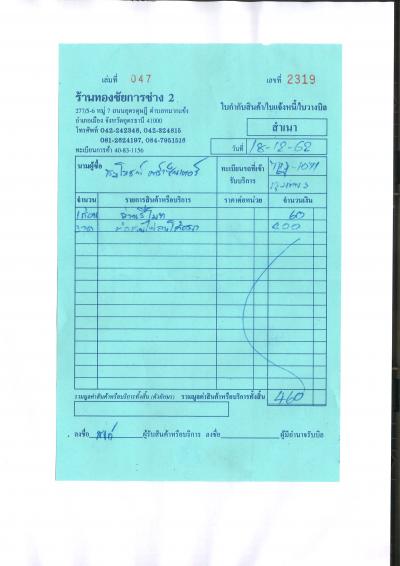 เล่มที่ 047 เลขที่ 2319
ร้านทองชัยการช่าง 2
ใบกำกับสินค้า/ใบแจ้งหนี้/ใบวางบิล
277/5-6 หมู่ 7 ถนนอุดรดุษฎี ตำบลหมากแข้ง
อำเภอเมือง จังหวัดอุดรธานี 41000
สำเนา
โทรศัพท์ 042-242348, 042-324815
081-2624197, 084-7951518
วันที่ 18-12-62
ทะเบียนการค้า 40-83-1156
นามผู้ซื้อ
ทะเบียนรถที่เข้ารับบริการ
กรุงเทพฯ
จำนวน รายการสินค้าหรือบริการ ราคาต่อหน่วย จำนวนเงิน
60
400
รวมมูลค่าสินค้าหรือบริการทั้งสิ้น (ตัวอักษร) รวมมูลค่าสินค้าหรือบริการทั้งสิ้น 460
ลงชื่อ ผู้รับสินค้าหรือบริการ ลงชื่อ ผู้มีอำนาจรับบิล